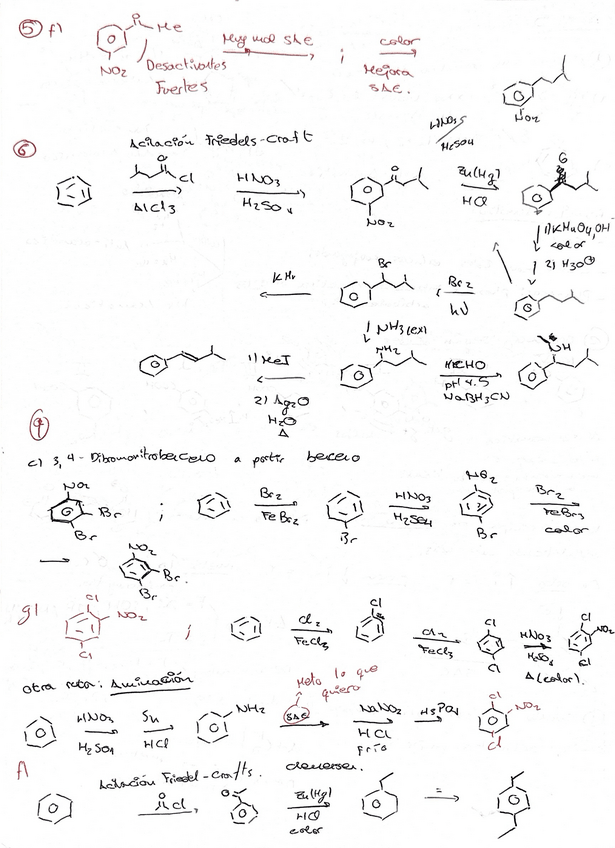 5 f)
O
Me
NO2
Desactivantes
Fuertes
Muy mal SAE
;
calor
Mejora
SAE.
NO2
6
Acilación Friedels-Craft
O
Cl
AlCl3
HNO3
H2SO4
O
NO2
HNO3
H2SO4
Zn(Hg)
HCl
1) KMnO4, OH
calor
2) H3O+
Br
Br2
hν
NH3(ex)
NH2
1) MeI
2) Ag2O
H2O
Δ
HCHO
pH 4.5
NaBH3CN
NH
9
c) 3,4-Dibromonitrobenceno a partir benceno
NO2
Br
Br
;
Br2
FeBr2
Br
HNO3
H2SO4
NO2
Br
Br2
FeBr3
calor
NO2
Br.
Br
g)
Cl
NO2
Cl
;
Cl2
FeCl3
Cl
Cl2
FeCl3
Cl
Cl
HNO3
H2SO4
Δ (calor).
Cl
NO2
Cl
Otra ruta: Aminación
Meto lo que
quiero
HNO3
H2SO4
Sn
HCl
NH2
SAE
NaNO2
HCl
frío
H3PO2
Cl
NO2
Cl
f)
Acilación Friedel-Crafts.
O
Cl
O
Zn(Hg)
HCl
calor
=